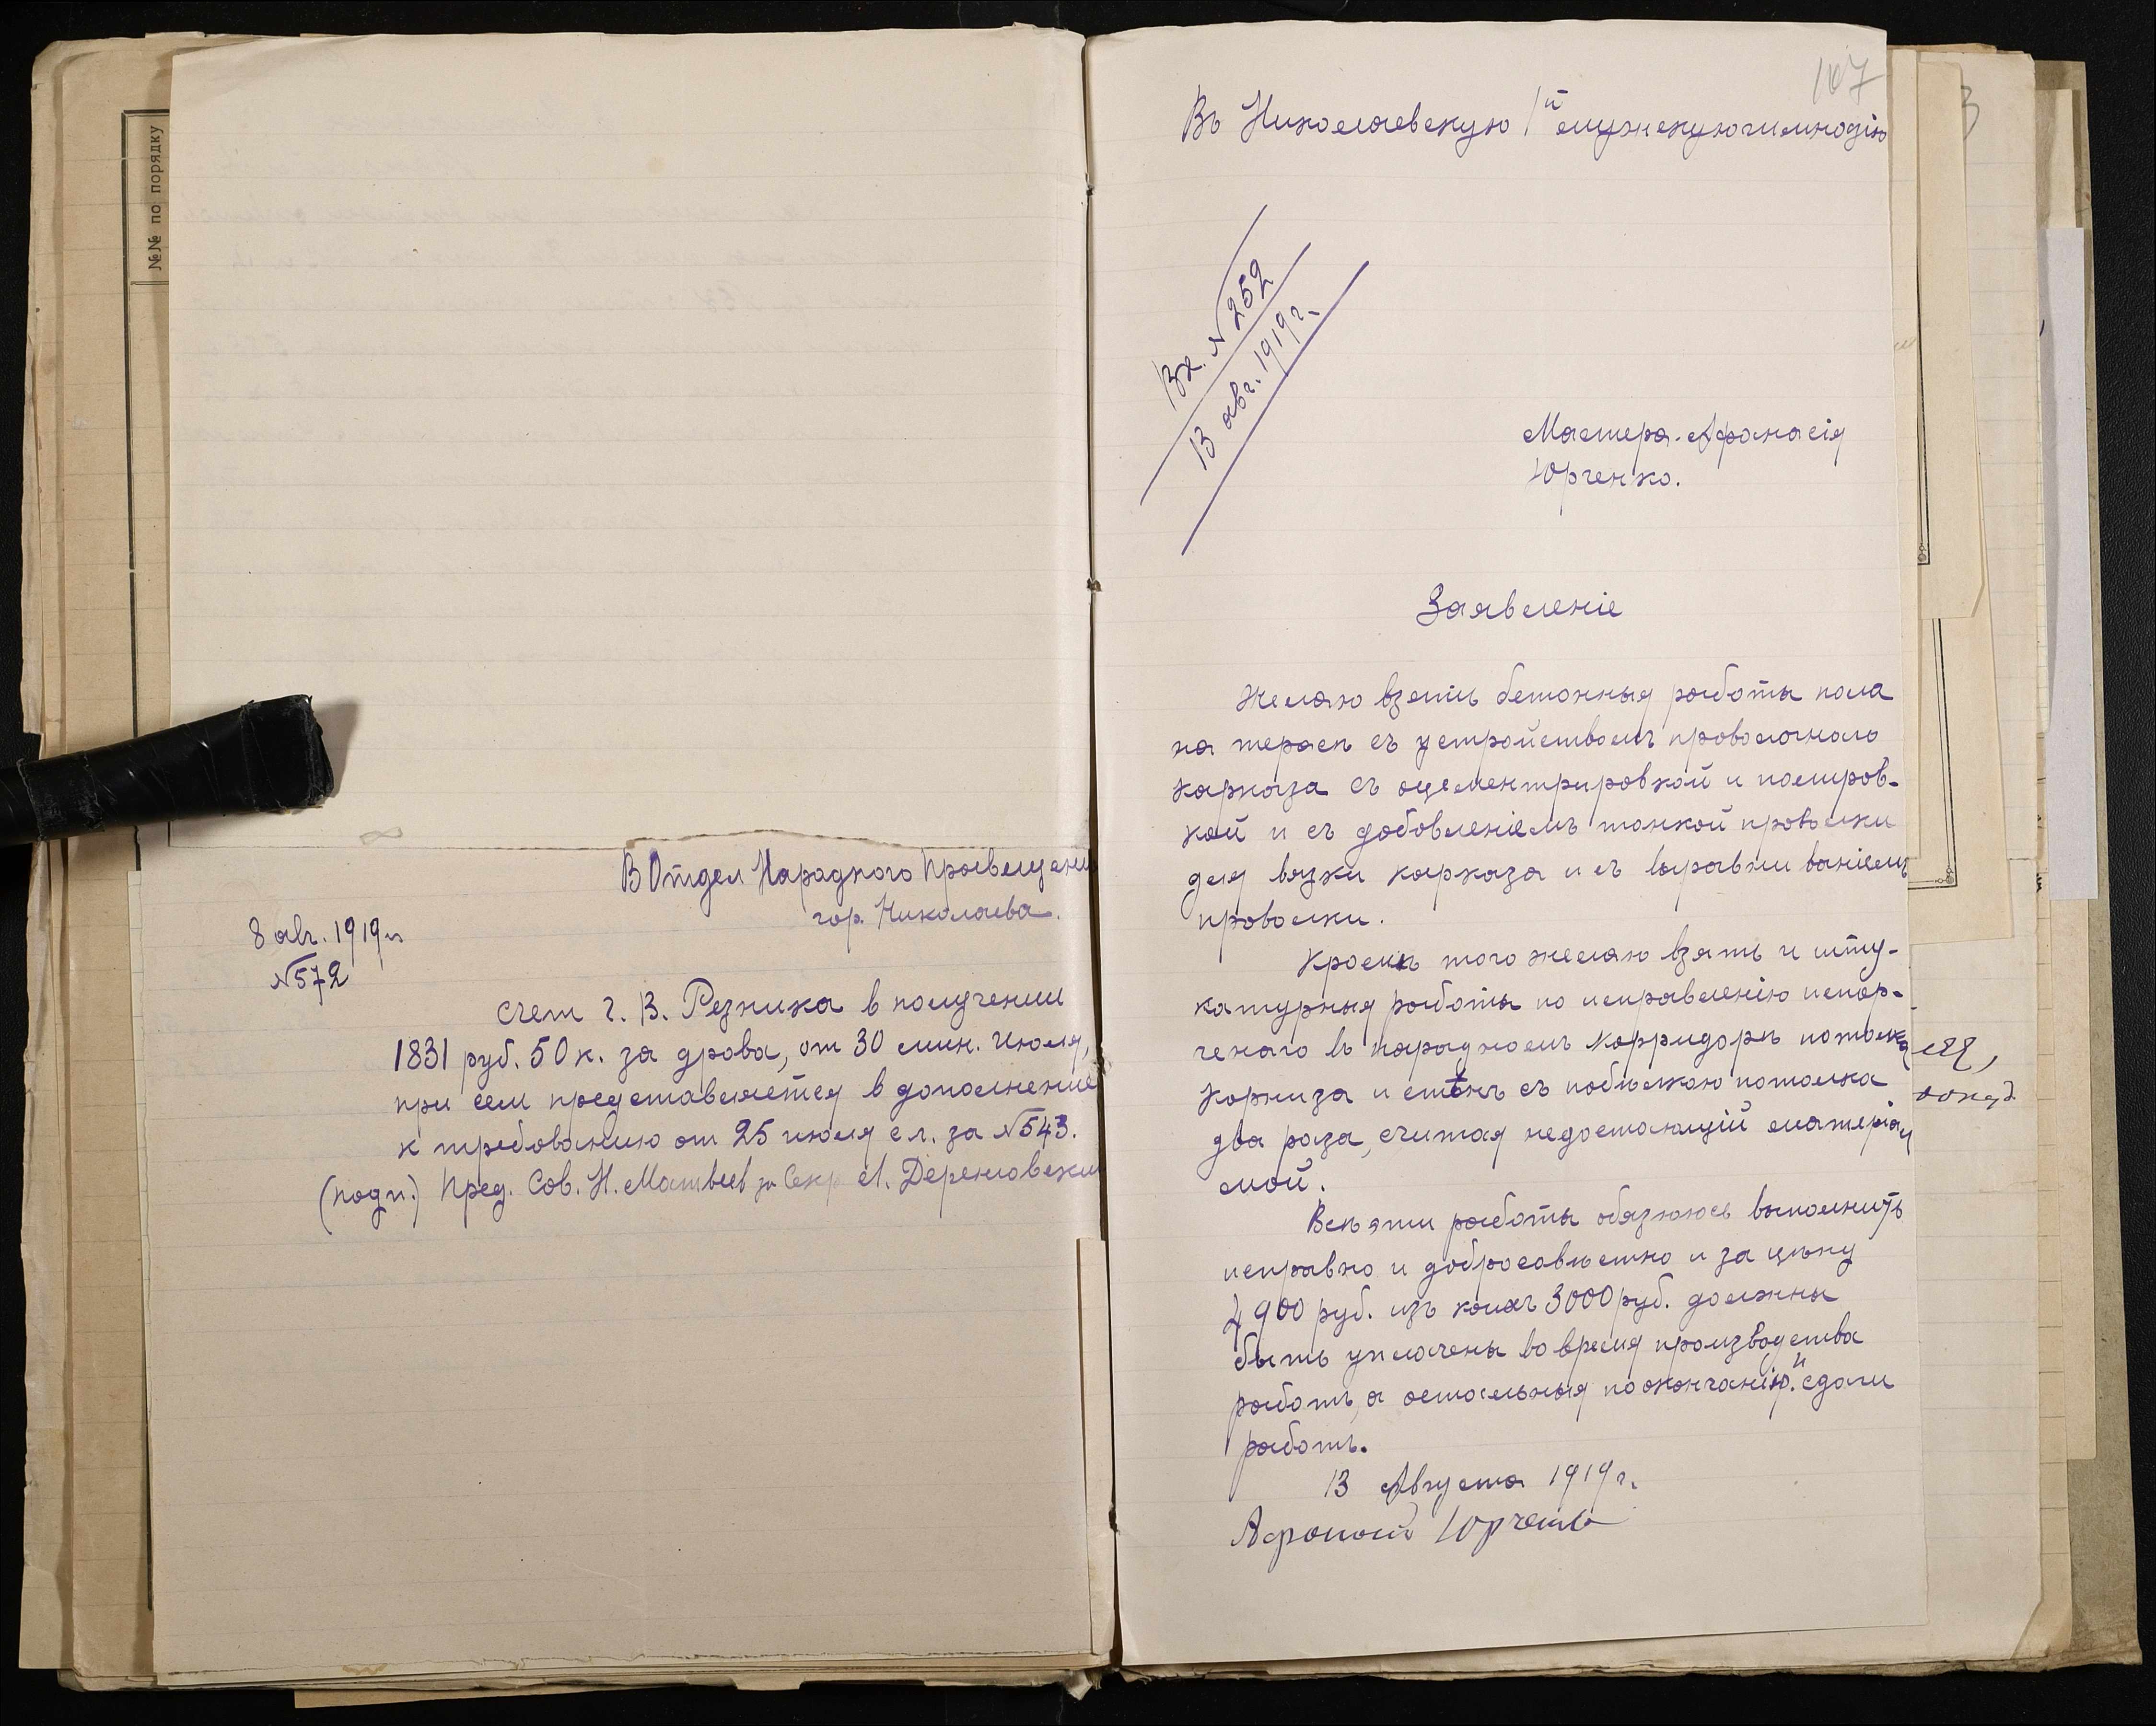 №№ по порядку
В Отдел Народного Просвещения
гор. Николаева.
8 авг. 1919 г.
№ 572
Счет Г. В. Резника в получении
1831 руб. 50 к. за дрова, от 30 мин. июля,
при сем представляется в дополнение
к требованию от 25 июля с.г. за № 543.
(подп.) Пред. Сов. Н. Матвеев за Секр. Л. Дереновский
107
Въ Николаевскую 1й мужскую гимназію
Вх. № 252
13 авг. 1919 г.
Мастера Афанасія
Юрченко.
Заявленіе
Желаю взять бетонныя работы пола
на терасѣ съ устройствомъ проволочнаго
карказа съ оцементрировкой и полиров-
кой и съ добовленіемъ тонкой проволки
для вязки карказа и съ выравниваніемъ
проволки.
Кромѣ того желаю взять и шту-
катурныя работы по исправленію испор-
ченаго въ парадномъ корридорѣ потолка,
карниза и стѣнъ съ побѣлкою потолка
два раза, считая недостающій матеріал
мой.
Всѣ эти работы обязуюсь выполнить
исправно и добросовѣстно и за цѣну
4900 руб. изъ коихъ 3000 руб. должны
быть уплочены во время производства
работъ, а остальныя по окончанію и сдачи
работъ.
13 Августа 1919 г.
Афонасій Юрченко